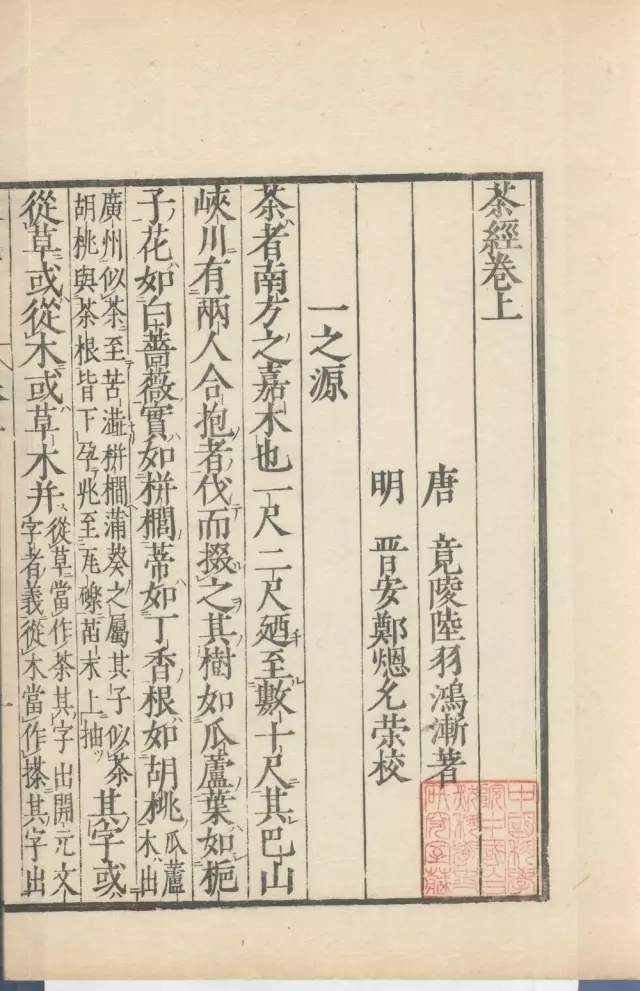 茶經卷上
唐 竟陵陸羽鴻漸著
明 晋安鄭熜允荣校
一之源
茶者南方之嘉木也一尺二尺廼至數十尺其巴山
峽川有兩人合抱者伐而掇之其樹如瓜蘆葉如梔
子花如白薔薇實如栟櫚蒂如丁香根如胡桃瓜蘆木出
廣州似茶至苦澁栟櫚蒲葵之屬其子似茶
胡桃與茶根皆下孕兆至瓦礫苗木上抽其字或
從草或從木或草木并從草當作茶其字出開元文
字者義從木當作搽其字出
中國科學
院中國自
然科學史
研究室藏